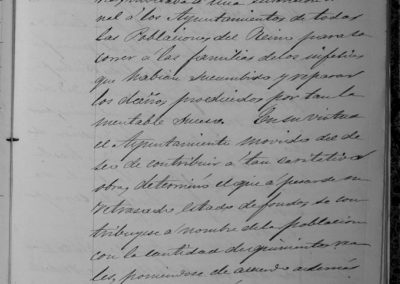 nal á los Ayuntamientos de todas
las Poblaciones del Reino para so
correr a las familias de los infelices
que habian sucumbido y reparar
los daños producidos por tan la
mentable suceso. En su virtud
el Ayuntamiento movido del de
seo de contribuir a tan caritativa
obra, determinó el que a pesar de su
retrasado estado de fondos, se con
tribuyese a nombre de la poblacion
con la cantidad de quinientos rea
les, poniendose de acuerdo ademas